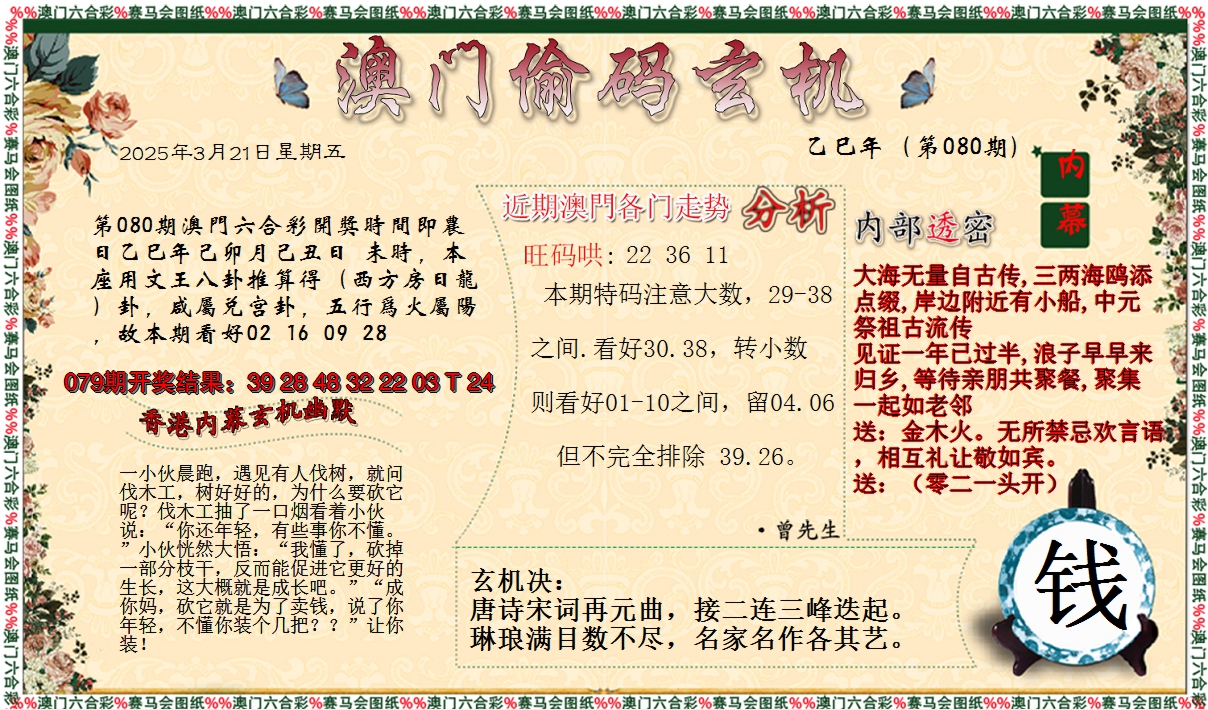 %%澳门六合彩%赛马会图纸%%澳门六合彩%赛马会图纸%%澳门六合彩%赛马会图纸%%澳门六合彩%赛马会图纸%%澳门六合彩%赛马会图纸%%澳门六合彩%赛马会图纸%%
澳门偷码玄机
2025年3月21日星期五
乙巳年（第080期）
第080期澳門六合彩開獎時間即農
日乙巳年己卯月己丑日 未時，本
座用文王八卦推算得（西方房日龍
）卦，咸屬兑宫卦，五行爲火屬陽
，故本期看好02 16 09 28
079期开奖结果：39 28 48 32 22 03 T 24
香港内幕玄机幽默
一小伙晨跑，遇见有人伐树，就问
伐木工，树好好的，为什么要砍它
呢？伐木工抽了一口烟看着小伙
说：“你还年轻，有些事你不懂。
”小伙恍然大悟：“我懂了，砍掉
一部分枝干，反而能促进它更好的
生长，这大概就是成长吧。”“成
你妈，砍它就是为了卖钱，说了你
年轻，不懂你装个几把？？”让你
装！
近期澳門各门走势 分析
旺码哄: 22 36 11
本期特码注意大数，29-38
之间.看好30.38，转小数
则看好01-10之间，留04.06
但不完全排除 39.26。
·曾先生
玄机决：
唐诗宋词再元曲，接二连三峰迭起。
琳琅满目数不尽，名家名作各其艺。
内幕
内部透密
大海无量自古传,三两海鸥添
点缀,岸边附近有小船,中元
祭祖古流传
见证一年已过半,浪子早早来
归乡,等待亲朋共聚餐,聚集
一起如老邻
送：金木火。无所禁忌欢言语
，相互礼让敬如宾。
送：（零二一头开）
钱
%%澳门六合彩%赛马会图纸%%澳门六合彩%赛马会图纸%%澳门六合彩%赛马会图纸%%澳门六合彩%赛马会图纸%%澳门六合彩%赛马会图纸%%澳门六合彩%赛马会图纸%%